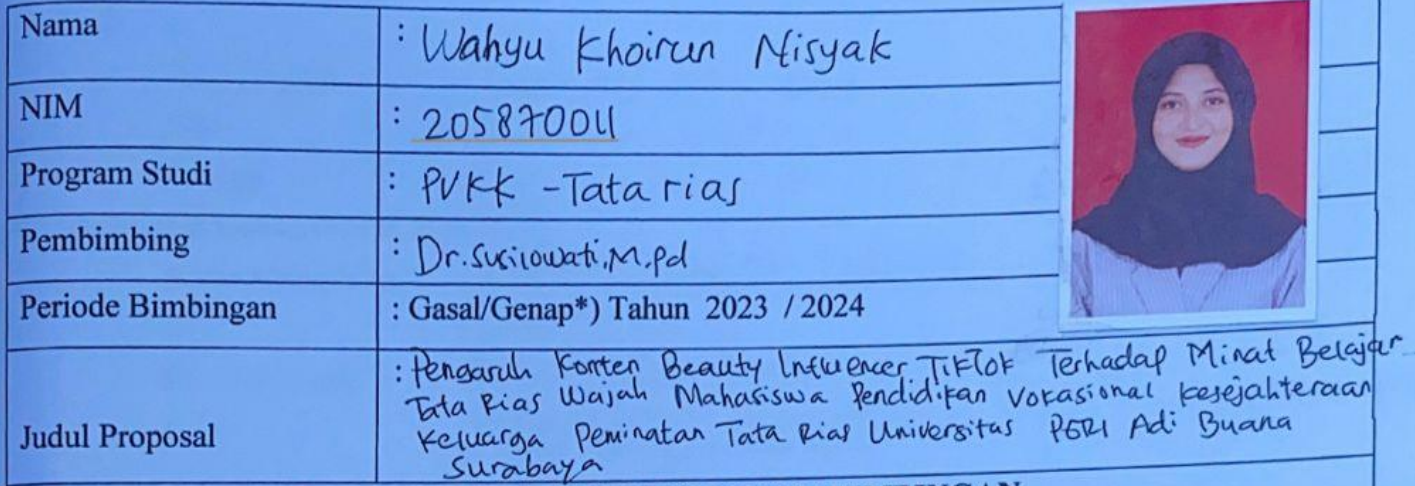 Nama : Wahyu Khoirun Nisyak
NIM : 205870011
Program Studi : PVKK - Tata rias
Pembimbing : Dr. Susilowati, M.pd
Periode Bimbingan : Gasal/Genap*) Tahun 2023 / 2024
Judul Proposal : Pengaruh Konten Beauty Influencer TikTok Terhadap Minat Belajar
Tata Rias Wajah Mahasiswa Pendidikan Vokasional Kesejahteraan
Keluarga Peminatan Tata Rias Universitas PGRI Adi Buana
Surabaya